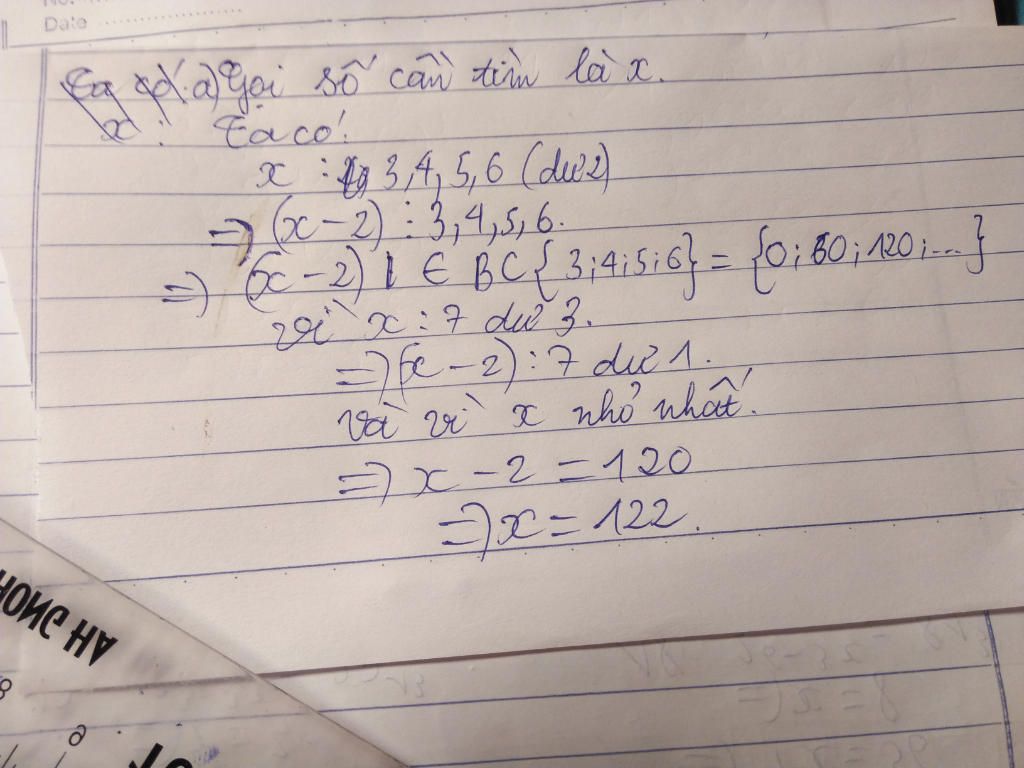 No:
Date
Ta có: a) Gọi số cần tìm là x.
x : Ta có:
x : 3,4,5,6 (dư 2)
=> (x - 2) : 3,4,5,6.
=> (x - 2) ∈ BC{3;4;5;6} = {0; 60; 120; ...}
vì x : 7 dư 3.
=> (x - 2) : 7 dư 1.
và vì x nhỏ nhất.
=> x - 2 = 120
=> x = 122.